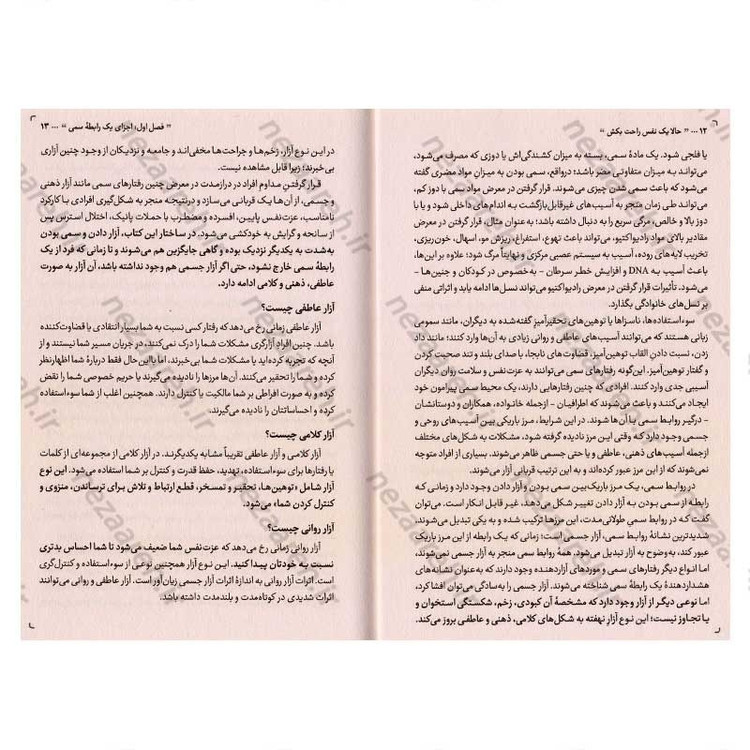 ۱۲ ... « حالا یک نفس راحت بکش »
یا فلجی شود. یک مادهٔ سمی، بسته به میزان کشندگی‌اش یا دوزی که مصرف می‌شود،
می‌تواند به میزان متفاوتی مضر باشد؛ درواقع، سمی بودن به میزانِ مواد مضری گفته
می‌شود که باعث سمی شدن چیزی می‌شوند. قرار گرفتن در معرض مواد سمی با دوز کم،
می‌تواند طی زمان منجر به آسیب‌های غیرقابل‌بازگشت به اندام‌های داخلی شود و یا با
دوز بالا و خالص، مرگی سریع را به دنبال داشته باشد؛ به‌عنوان مثال، قرار گرفتن در معرض
مقادیر بالای مواد رادیواکتیو، می‌تواند باعث تهوع، استفراغ، ریزش مو، اسهال، خون‌ریزی،
تخریب لایه‌های روده، آسیب به سیستم عصبی مرکزی و نهایتاً مرگ شود؛ علاوه بر این‌ها،
باعث آسیب به DNA و افزایش خطر سرطان - به‌خصوص در کودکان و جنین‌ها -
می‌شود. تأثیرات قرار گرفتن در معرض رادیواکتیو می‌تواند نسل‌ها ادامه یابد و اثراتی منفی
بر نسل‌های خانوادگی بگذارد.
سوءاستفاده‌ها، ناسزاها یا توهین‌های تحقیرآمیز گفته‌شده به دیگران، مانند سمومی
زبانی هستند که می‌توانند آسیب‌های عاطفی و روانی زیادی به آن‌ها وارد کنند؛ مانند داد
زدن، نسبت دادنِ القاب توهین‌آمیز، قضاوت‌های نابجا، با صدای بلند و تند صحبت کردن
و گفتار توهین‌آمیز. این‌گونه رفتارهای سمی می‌توانند به عزت‌نفس و سلامت روان دیگران
آسیبی جدی وارد کنند. افرادی که چنین رفتارهایی دارند، یک محیط سمی پیرامون خود
ایجاد می‌کنند و باعث می‌شوند که اطرافیان - ازجمله خانواده، همکاران و دوستانشان
- درگیر روابط سمی با آن‌ها شوند. در این شرایط، مرز باریکی بین آسیب‌های روحی و
جسمی وجود دارد که وقتی این مرز نادیده گرفته شود، مشکلات به شکل‌های مختلف
ازجمله آسیب‌های ذهنی، عاطفی و یا حتی جسمی ظاهر می‌شوند. بسیاری از افراد متوجه
نمی‌شوند که از این مرز عبور کرده‌اند و به این ترتیب قربانی آزار می‌شوند.
در روابط سمی، یک مرز باریک بین سمی بودن و آزار دادن وجود دارد و زمانی که
رابطه از سمی بودن به آزار دادن تغییر شکل می‌دهد، غیر قابل انکار است. می‌توان
گفت که در روابط سمی طولانی‌مدت، این مرزها ترکیب شده و به یکی تبدیل می‌شوند.
شدیدترین نشانهٔ روابط سمی، آزار جسمی است؛ زمانی که یک رابطه از این مرز باریک
عبور کند، به‌وضوح به آزار تبدیل می‌شود. همهٔ روابط سمی منجر به آزار جسمی نمی‌شوند
اما انواع دیگر رفتارهای سمی و موردهای آزاردهنده وجود دارند که به‌عنوان نشانه‌های
هشداردهندهٔ یک رابطهٔ سمی شناخته می‌شوند. آزار جسمی را به‌سادگی می‌توان افشا کرد،
اما نوعی دیگر از آزار وجود دارد که مشخصهٔ آن کبودی، زخم، شکستگی استخوان و
یا تجاوز نیست؛ این نوع آزار نهفته به شکل‌های کلامی، ذهنی و عاطفی بروز می‌کند.
« فصل اول؛ اجزای یک رابطهٔ سمی » ... ۱۳
در این نوع آزار، زخم‌ها و جراحت‌ها مخفی‌اند و جامعه و نزدیکان از وجود چنین آزاری
بی‌خبرند؛ زیرا قابل مشاهده نیست.
قرار گرفتنِ مداوم افراد در درازمدت در معرض چنین رفتارهای سمی مانند آزار ذهنی
و جسمی، از آن‌ها یک قربانی می‌سازد و درنتیجه منجر به شکل‌گیری افرادی با کارکرد
نامناسب، عزت‌نفس پایین، افسرده و مضطرب با حملات پانیک، اختلال استرس پس
از سانحه و گرایش به خودکشی می‌شود. در ساختار این کتاب، آزار دادن و سمی بودن
به‌شدت به یکدیگر نزدیک بوده و گاهی جایگزین هم می‌شوند و تا زمانی که فرد از یک
رابطهٔ سمی خارج نشود، حتی اگر آزار جسمی هم وجود نداشته باشد، آن آزار به صورت
عاطفی، ذهنی و کلامی ادامه دارد.
آزار عاطفی چیست؟
آزار عاطفی زمانی رخ می‌دهد که رفتار کسی نسبت به شما بسیار انتقادی یا قضاوت‌کننده
باشد. چنین افرادِ آزارگری مشکلات شما را درک نمی‌کنند، در جریان مسیر شما نیستند و از
آنچه که تجربه کرده‌اید یا مشکلات شما بی‌خبرند، اما بااین‌حال فقط دربارهٔ شما اظهارنظر
کرده و شما را تحقیر می‌کنند. آن‌ها مرزها را نادیده می‌گیرند یا حریم خصوصی شما را نقض
کرده و به صورت افراطی بر شما مالکیت یا کنترل دارند. همچنین اغلب از شما سوءاستفاده
کرده و احساساتتان را نادیده می‌گیرند.
آزار کلامی چیست؟
آزار کلامی و آزار عاطفی تقریباً مشابه یکدیگرند. در آزار کلامی از مجموعه‌ای از کلمات
یا رفتارها برای سوءاستفاده، تهدید، حفظ قدرت و کنترل بر شما استفاده می‌شود. این نوع
آزار شامل «توهین‌ها، تحقیر و تمسخر، قطع ارتباط و تلاش برای ترساندن، منزوی و
کنترل کردن شما» می‌شود.
آزار روانی چیست؟
آزار روانی زمانی رخ می‌دهد که عزت‌نفس شما ضعیف می‌شود تا شما احساس بدتری
نسبت به خودتان پیدا کنید. این نوع آزار همچنین نوعی از سوءاستفاده و کنترل‌گری
است. اثرات آزار روانی به اندازهٔ اثرات آزار جسمی زیان‌آور است. آزار عاطفی و روانی می‌توانند
اثرات شدیدی در کوتاه‌مدت و بلندمدت داشته باشد.
nezaareh.ir